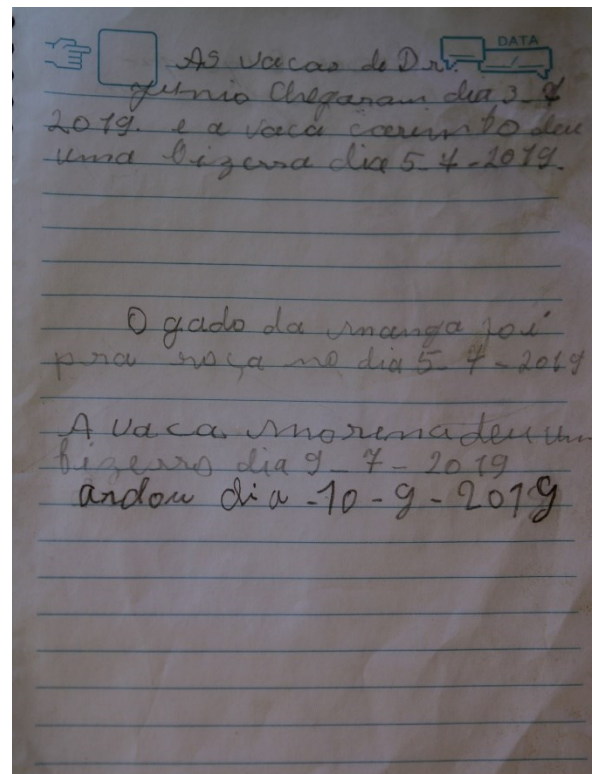 DATA
As vacas de Dr.
Junio Chegaram dia 3-7
2019. e a vaca carimbo deu
uma bizerra dia 5-7-2019.
O gado da manga foi
pra roça no dia 5-7-2019
A vaca morena deu um
bizerro dia 9-7-2019
andou dia -10-9-2019